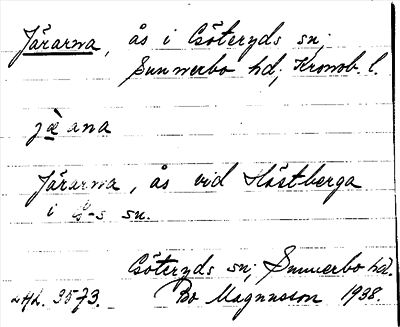 Järarna, ås i Göteryds sn;
Sunnerbo hd; Kronob. l.
jæ̀ ana
Järarna, ås vid Höstberga
i G-s sn.
Göteryds sn; Sunnerbo hd.
3573. Bo Magnusson 1938.